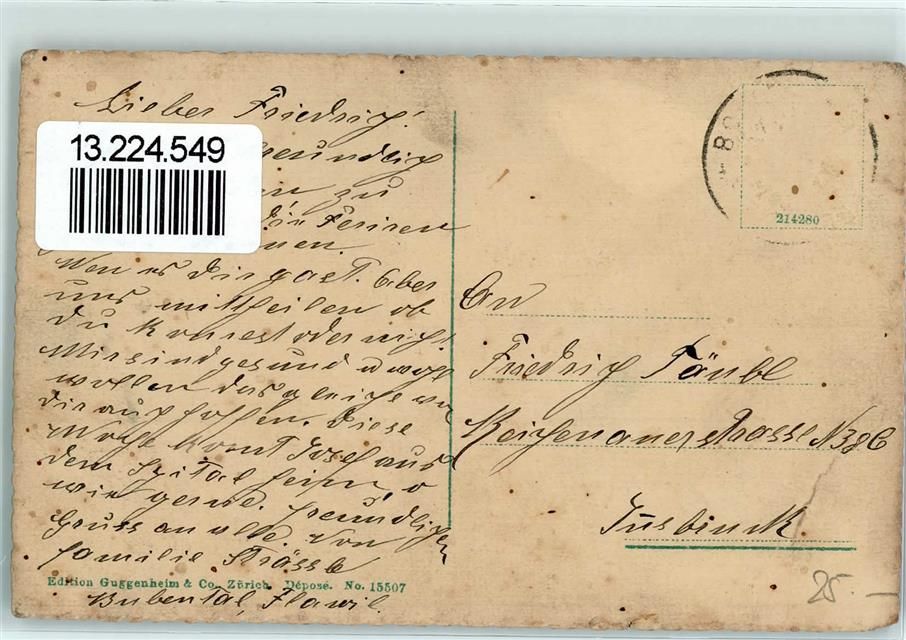 Lieber Friedrich!
13.224.549
freundlich
zu
die Ferien
Wen es dir past. aber
uns mittheilen ob
du komest oder nicht
Mir sind gesund u wohl
wollen das gleiche von
dir auch hoffen. Diese
Woche komt Josef aus
dem Spital heim, o
wie gerne. freundlichen
Gruss an alle. von
Familie Strässle
Bubental, Flawil.
Edition Guggenheim & Co., Zürich. Déposé. No. 15507
214280
An
Friedrich Täubl
Reichenauerstrasse N
Insbruck
25.-